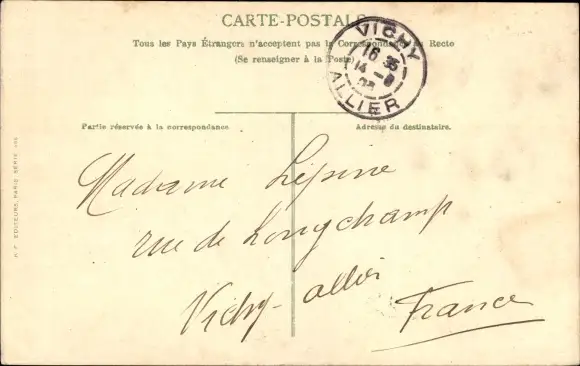 CARTE-POSTALE
Tous les Pays Étrangers n'acceptent pas la Correspondance au Recto
(Se renseigner à la Poste)
VICHY
16 35
14 - 8
ALLIER
Partie réservée à la correspondance.
Adresse du destinataire.
Madame Lépine
rue de Longchamp
Vichy - allier
France
EDITEURS, PARIS SÉRIE